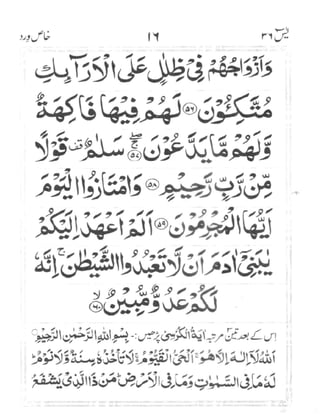 یٰسٓ ۳۶ ۱۶ خاص ورد
وَاَزْوَاجُهُمْ فِیْ ظِلٰلٍ عَلَی الْاَرَآئِكِ
مُتَّكِـُٔوْنَ ﴿۵۶﴾ لَهُمْ فِیْهَا فَاكِهَةٌ
وَّلَهُمْ مَّا یَدَّعُوْنَ ﴿۵۷﴾ سَلٰمٌ قَوْلًا
مِّنْ رَّبٍّ رَّحِیْمٍ ﴿۵۸﴾ وَامْتَازُوا الْیَوْمَ
اَیُّهَا الْمُجْرِمُوْنَ ﴿۵۹﴾ اَلَمْ اَعْهَدْ اِلَیْكُمْ
یٰبَنِیْۤ اٰدَمَ اَنْ لَّا تَعْبُدُوا الشَّیْطٰنَ ۚ اِنَّهٗ
لَكُمْ عَدُوٌّ مُّبِیْنٌ ﴿۶۰﴾
اس کے بعد تین مرتبہ اٰیَةُ الْكُرْسِیْ پڑھیں: بِسْمِ اللهِ الرَّحْمٰنِ الرَّحِیْمِ
اَللهُ لَاۤ اِلٰهَ اِلَّا هُوَ ۚ اَلْحَیُّ الْقَیُّوْمُ ۚ لَا تَاْخُذُهٗ سِنَةٌ وَّلَا نَوْمٌ ؕ
لَهٗ مَا فِی السَّمٰوٰتِ وَمَا فِی الْاَرْضِ ؕ مَنْ ذَا الَّذِیْ یَشْفَعُ